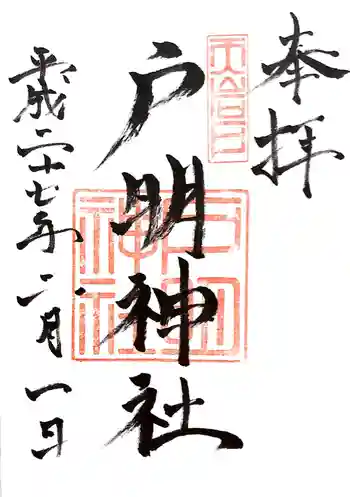 奉拝
戸明神社
平成二十七年二月一日
戸明
神社